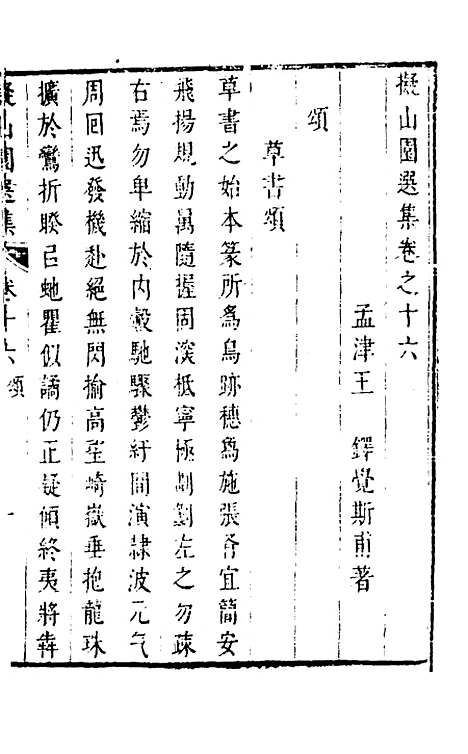 擬山園選集卷之十六
孟津王　鐸覺斯甫著
頌
草書頌
草書之始本篆所爲鳥跡穗爲施張各宜簡安
飛揚規動萬隨握周濙柢寧極劘劃左之勿疎
右焉勿卑縮於内縠馳驟鬱紆間演隷波元气
周回迅發機赴絕無閃揄高崖崎嶽垂抱龍珠
擴於鸞折睽已虵瞿似譎仍正疑傾終夷將犇
擬山園選集　卷十六　頌　一